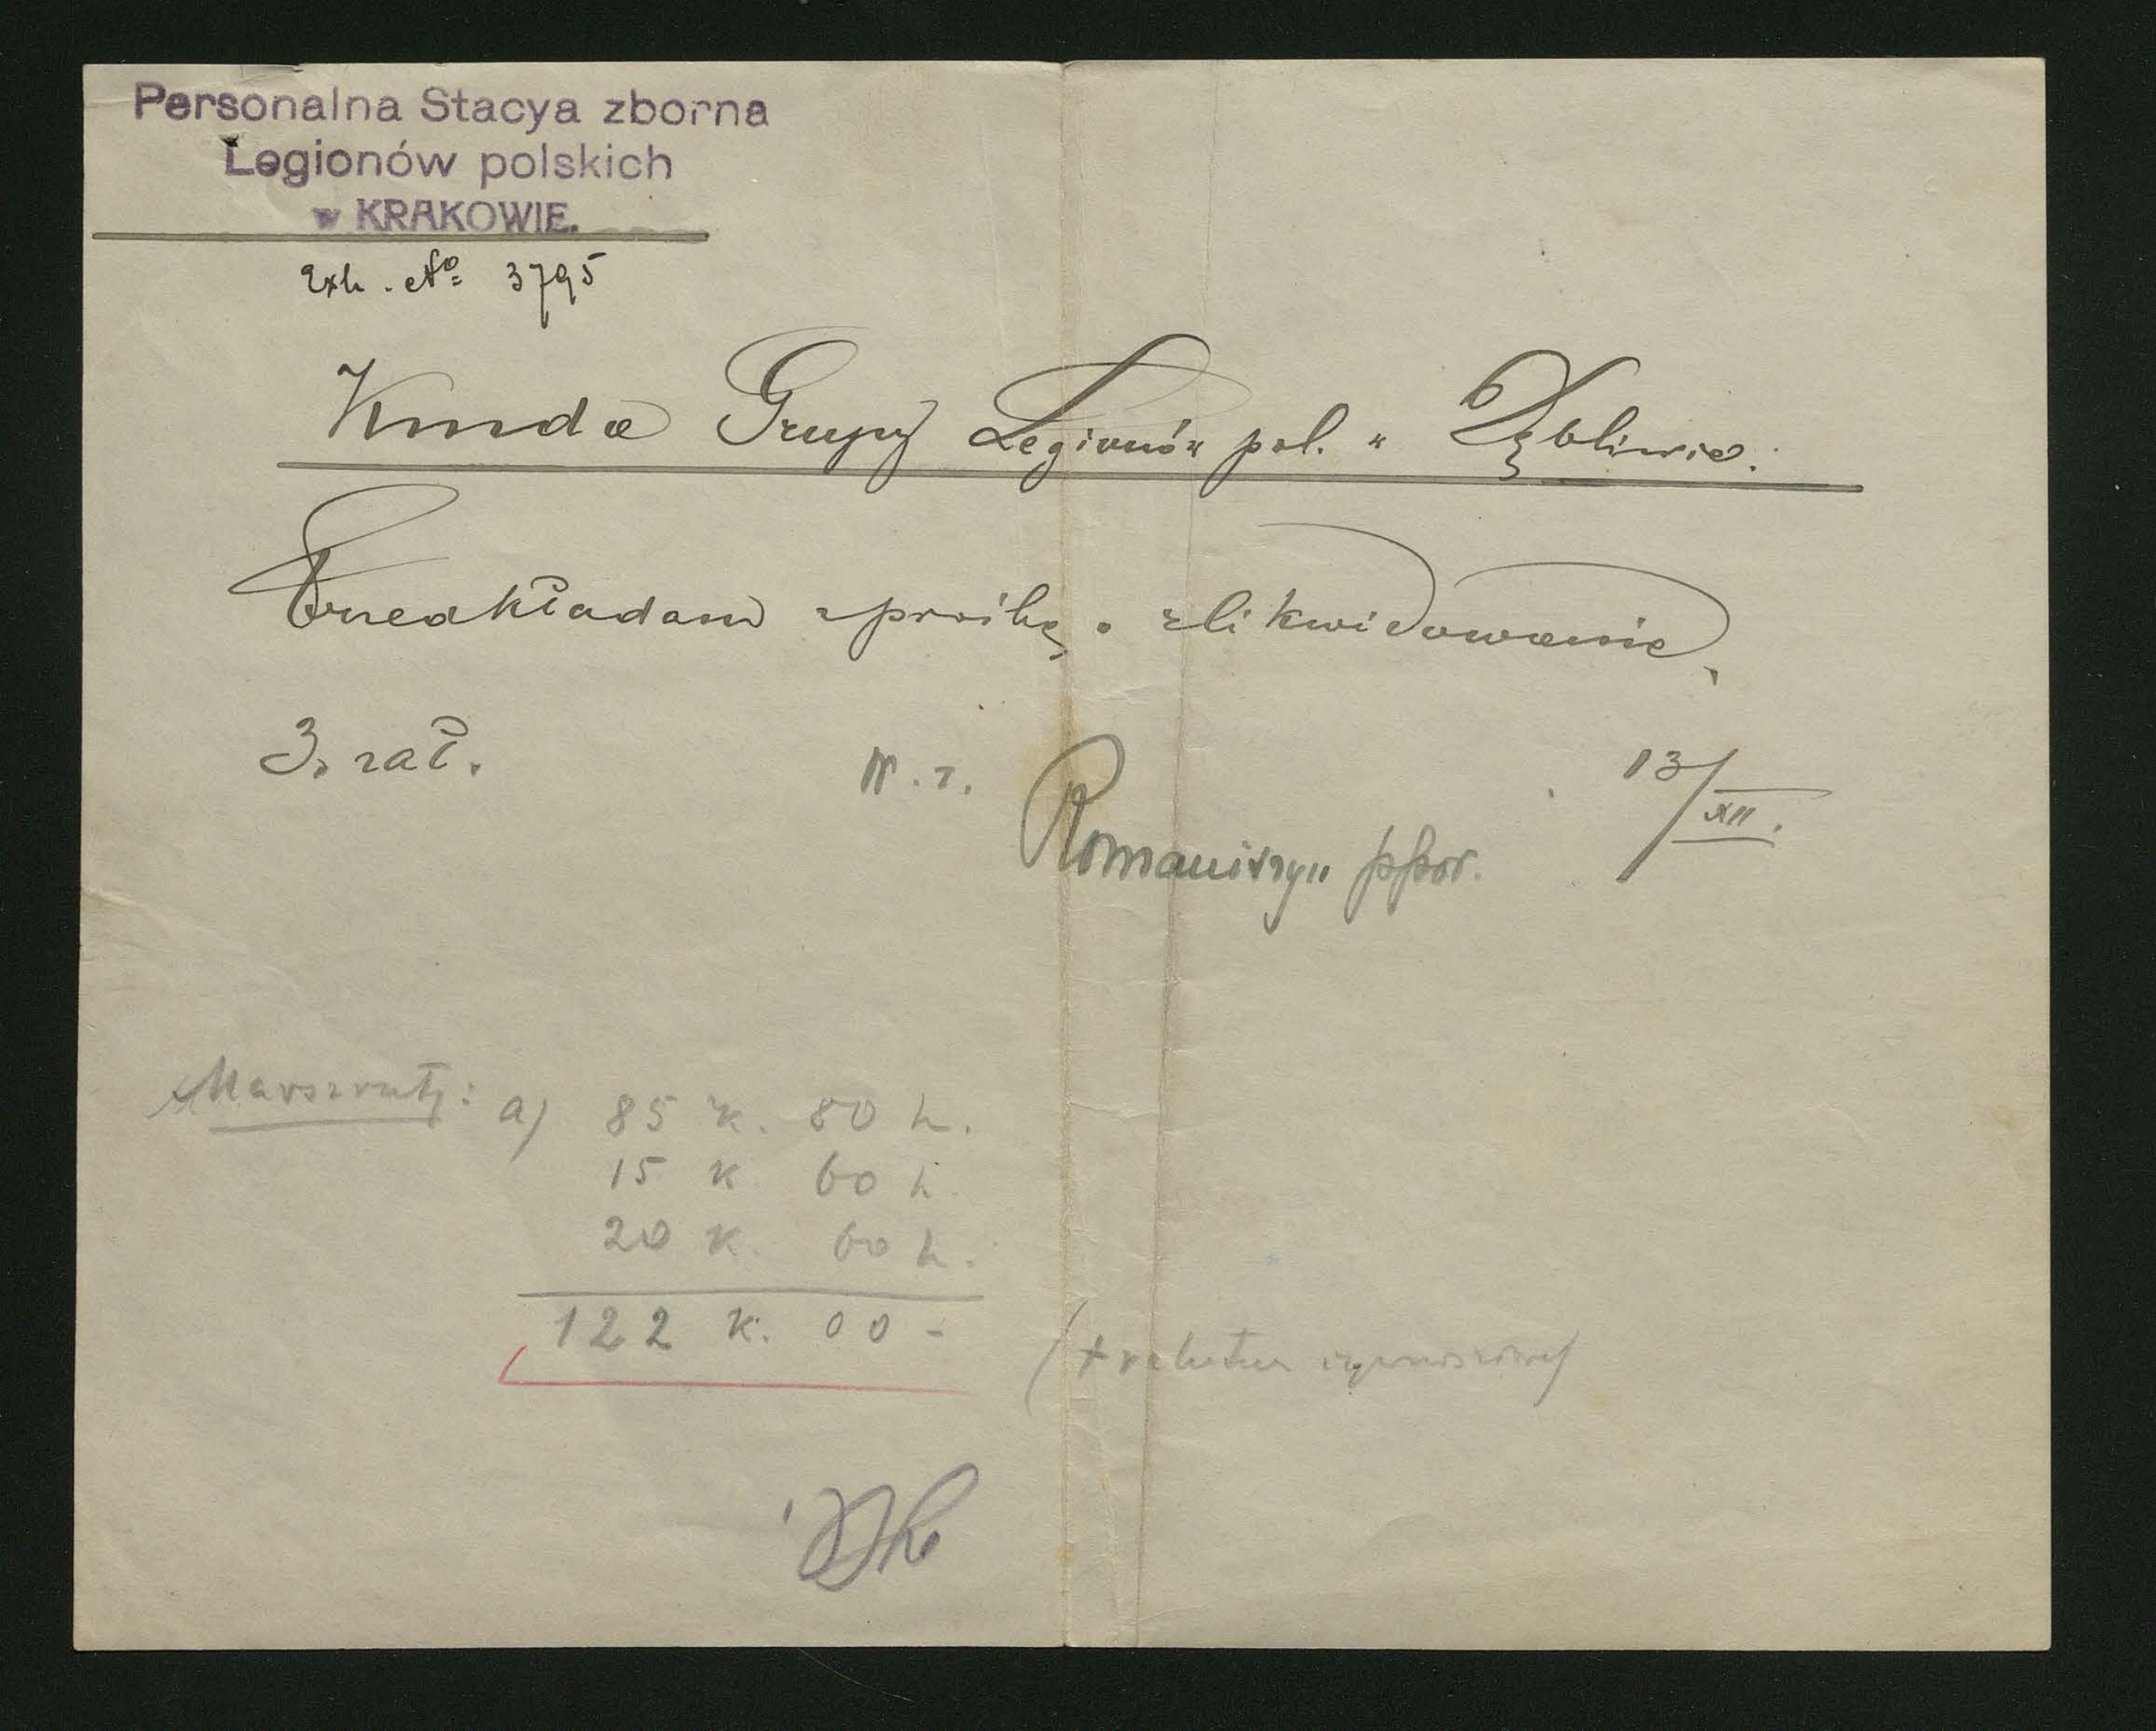 Personalna Stacya zborna
Legionów polskich
w KRAKOWIE.
Exh. No 3795
Kmda Grupy Legionów pol. w Dęblinie.
Przedkładam z prośbą o zlikwidowanie.
3. zał.
W. z. Romaniszyn ppor. 13/XII.
Marszruty: a) 85 K. 80 h.
15 K. 60 h.
20 K. 60 h.
122 K. 00 -
(+ relutum